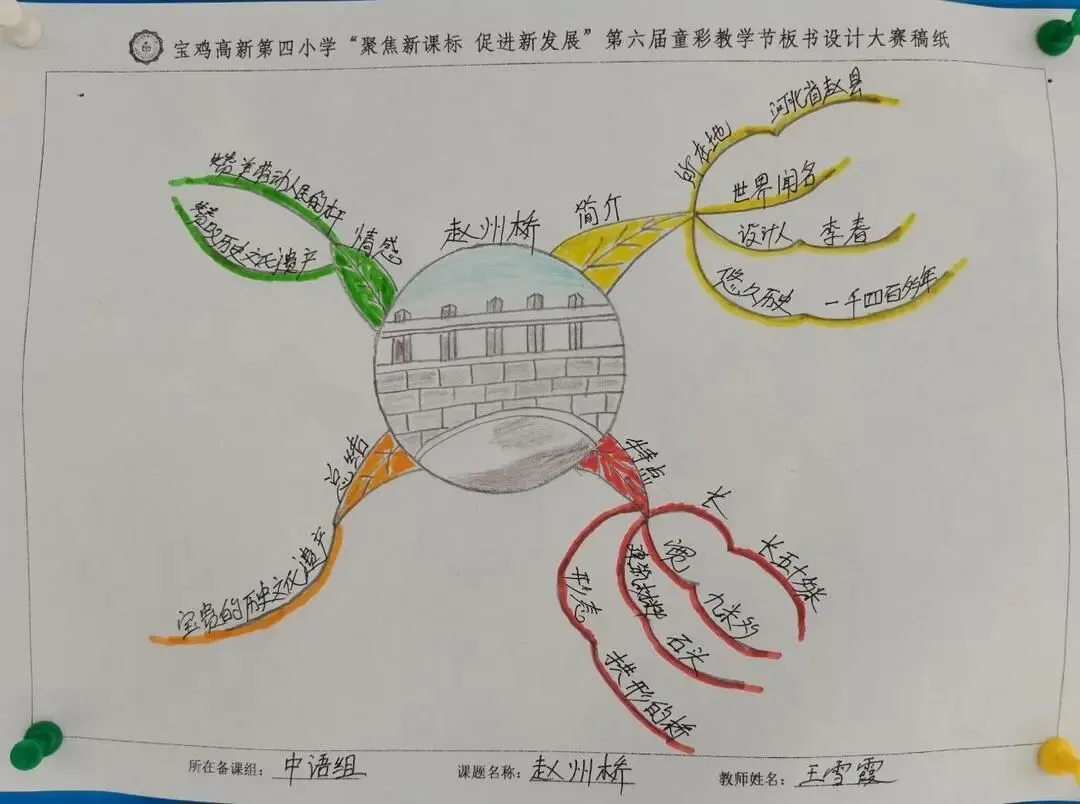 宝鸡高新第四小学“聚焦新课标 促进新发展”第六届童彩教学节板书设计大赛稿纸
赵州桥
简介
所在地
河北省赵县
世界闻名
设计人
李春
悠久历史
一千四百多年
情感
赞美劳动人民的
历史文化遗产
特点
长
长五十多米
宽
九米多
建筑材料
石头
形态
拱形的桥
总结
宝贵的历史文化遗产
所在备课组：中语组
课题名称：赵州桥
教师姓名：王雪霞